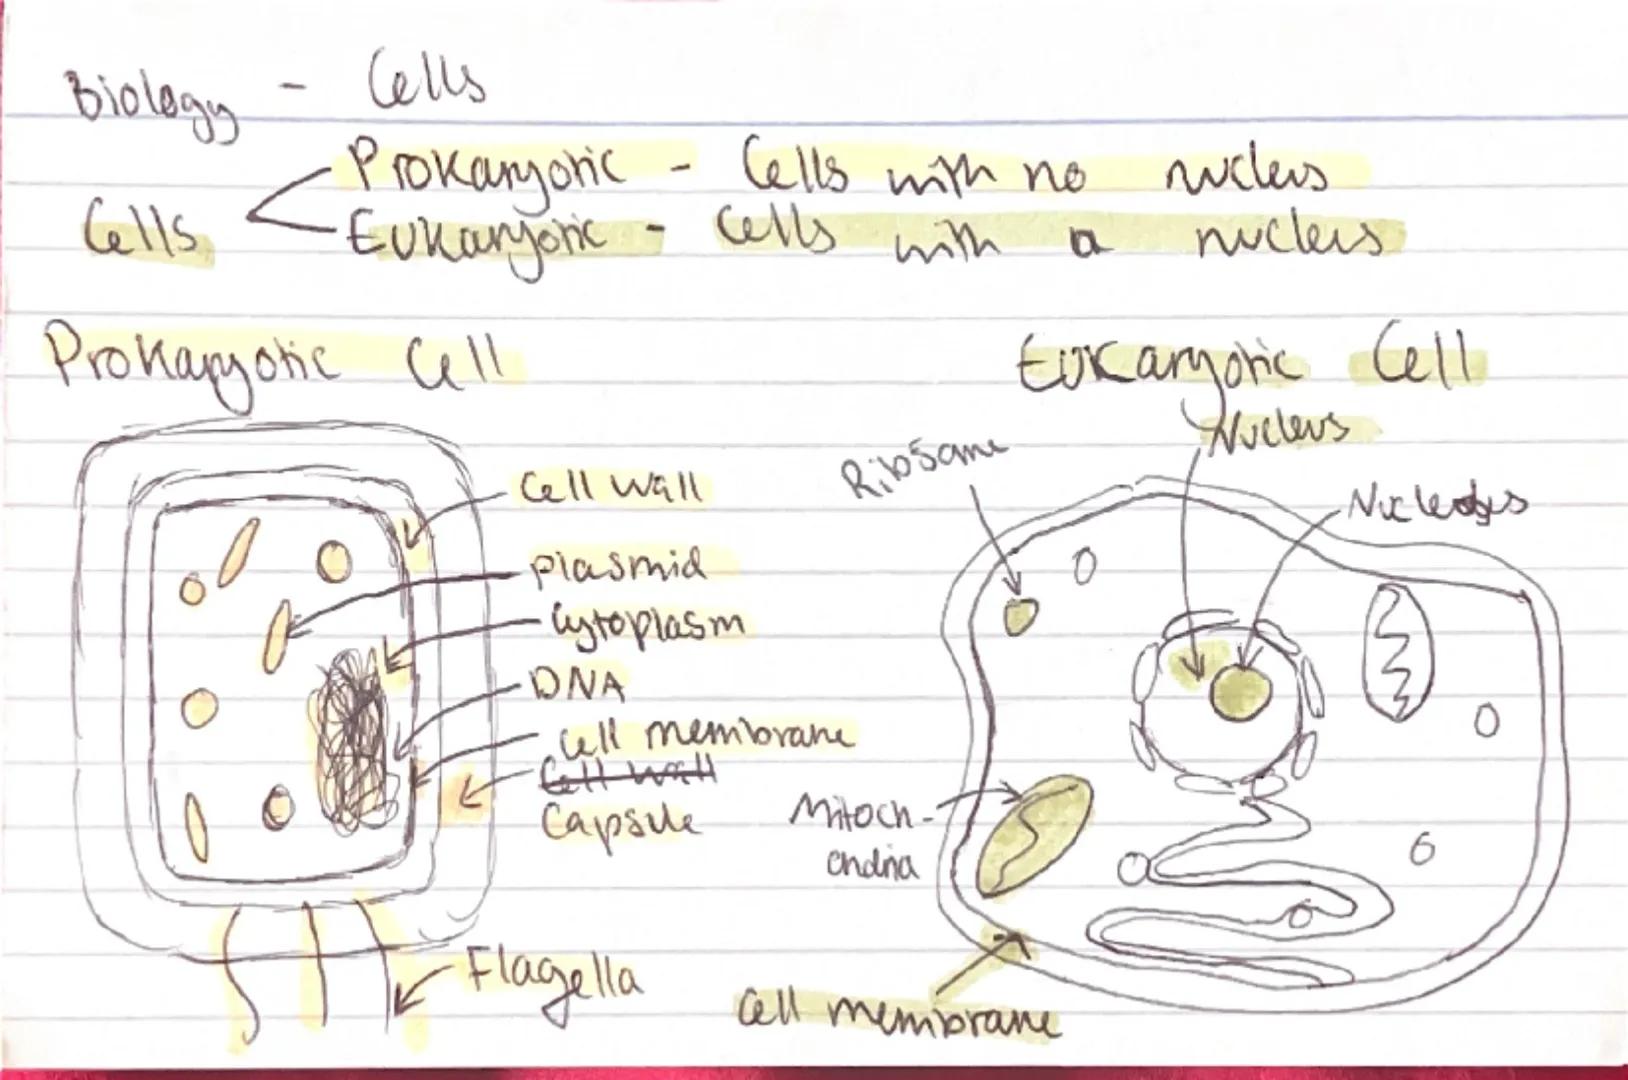 Biology - Cells
Cells
Prokaryotic - Cells with no nucleus
Eukaryotic - Cells with a nucleus
Prokaryotic Cell
Eukaryotic Cell
Nucleus
Ribosome
Cell wall
plasmid
Cytoplasm
DNA
Cell membrane
Cell wall
Capsule
Flagella
Mitoch-
ondria
Cell membrane